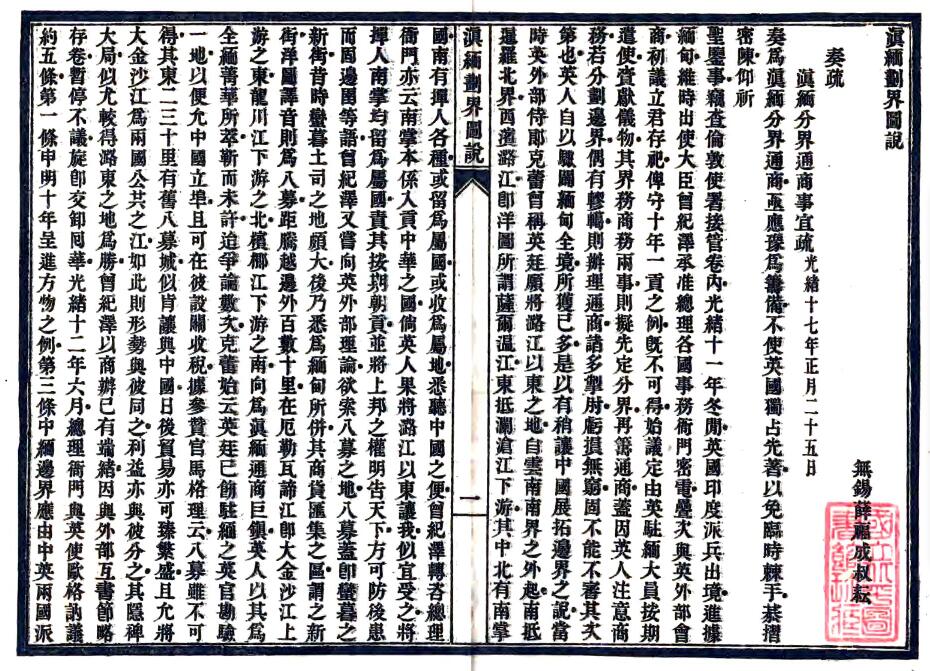 滇緬劃界圖說
無錫薛福成叔耘
奏疏
滇緬分界通商事宜疏光緒十七年正月二十五日
奏爲滇緬分界通商亟應豫爲籌備不使英國獨占先著以免臨時棘手恭摺
密陳仰祈
聖鑒事竊查倫敦使署接管卷內光緒十一年冬聞英國印度派兵出境進據
緬甸維時出使大臣曾紀澤承准總理各國事務衙門密電疊次與英外部會
商初議立君存祀俾守十年一貢之例旣不可得始議定由英駐緬大員按期
遣使齎獻儀物其界務商務兩事則擬先定分界再籌通商蓋因英人注意商
務若分劃邊界偶有轇轕則辦理通商諸多掣肘虧損無窮固不能不審其次
第也英人自以驟闢緬甸全境所獲已多是以有稍讓中國展拓邊界之說當
時英外部侍郎克蕾曾稱英廷願將潞江以東之地自雲南南界之外起南抵
暹羅北界西濱潞江卽洋圖所謂薩爾溫江東抵瀾滄江下游其中北有南掌
滇緬劃界圖說
一
國南有撣人各種或留爲屬國或收爲屬地悉聽中國之便曾紀澤轉咨總理
衙門亦云南掌本係入貢中華之國倘英人果將潞江以東讓我似宜受之將
撣人南掌均留爲屬國責其按期朝貢並將上邦之權明告天下方可防後患
而固邊圉等語曾紀澤又嘗向英外部理論欲索八募之地八募蓋卽蠻暮之
新街昔時蠻暮土司之地頗大後乃悉爲緬甸所併其商貨匯集之區謂之新
街洋圖譯音則爲八募距騰越邊外百數十里在厄勒瓦諦江卽大金沙江上
游之東龍川江下游之北檳榔江下游之南向爲滇緬通商巨鎭英人以其爲
全緬菁華所萃靳而未許迨爭論數次克蕾始云英廷已飭駐緬之英官勘驗
一地以便允中國立埠且可在彼設關收稅據參贊官馬格理云八募雖不可
得其東二三十里有舊八募城似肯讓與中國日後貿易亦可臻繁盛且允將
大金沙江爲兩國公共之江如此則形勢與彼同之利益亦與彼分之其隱裨
大局似尤較得潞東之地爲勝曾紀澤以商辦已有端緒因與外部互書節略
存卷暫停不議旋卽交卸囘華光緒十二年六月總理衙門與英使歐格訥議
約五條第一條申明十年呈進方物之例第三條中緬邊界應由中英兩國派